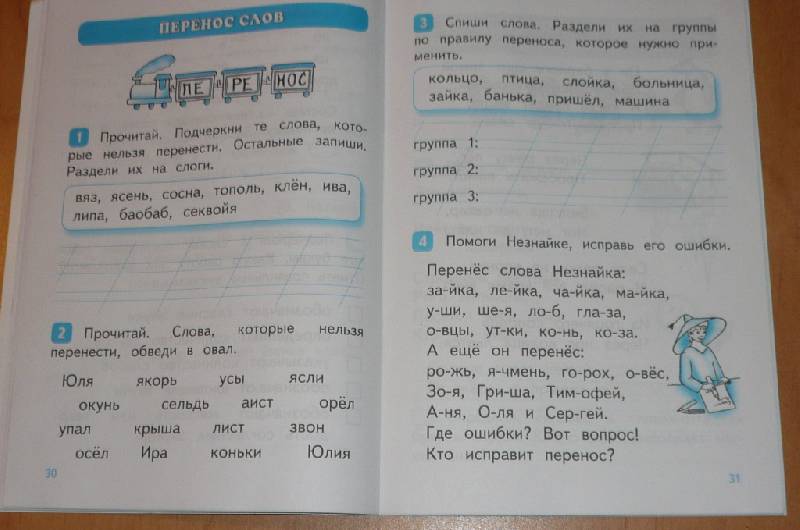 ПЕРЕНОС СЛОВ
ПЕ РЕ НОС
1 Прочитай. Подчеркни те слова, кото-
рые нельзя перенести. Остальные запиши.
Раздели их на слоги.
вяз, ясень, сосна, тополь, клён, ива,
липа, баобаб, секвойя
2 Прочитай. Слова, которые нельзя
перенести, обведи в овал.
Юля якорь усы ясли
окунь сельдь аист орёл
упал крыша лист звон
осёл Ира коньки Юлия
30
3 Спиши слова. Раздели их на группы
по правилу переноса, которое нужно при-
менить.
кольцо, птица, слойка, больница,
зайка, банька, пришёл, машина
группа 1:
группа 2:
группа 3:
4 Помоги Незнайке, исправь его ошибки.
Перенёс слова Незнайка:
за-йка, ле-йка, ча-йка, ма-йка,
у-ши, ше-я, ло-б, гла-за,
о-вцы, ут-ки, ко-нь, ко-за.
А ещё он перенёс:
ро-жь, я-чмень, го-рох, о-вёс,
Зо-я, Гри-ша, Тим-офей,
А-ня, О-ля и Сер-гей.
Где ошибки? Вот вопрос!
Кто исправит перенос?
31